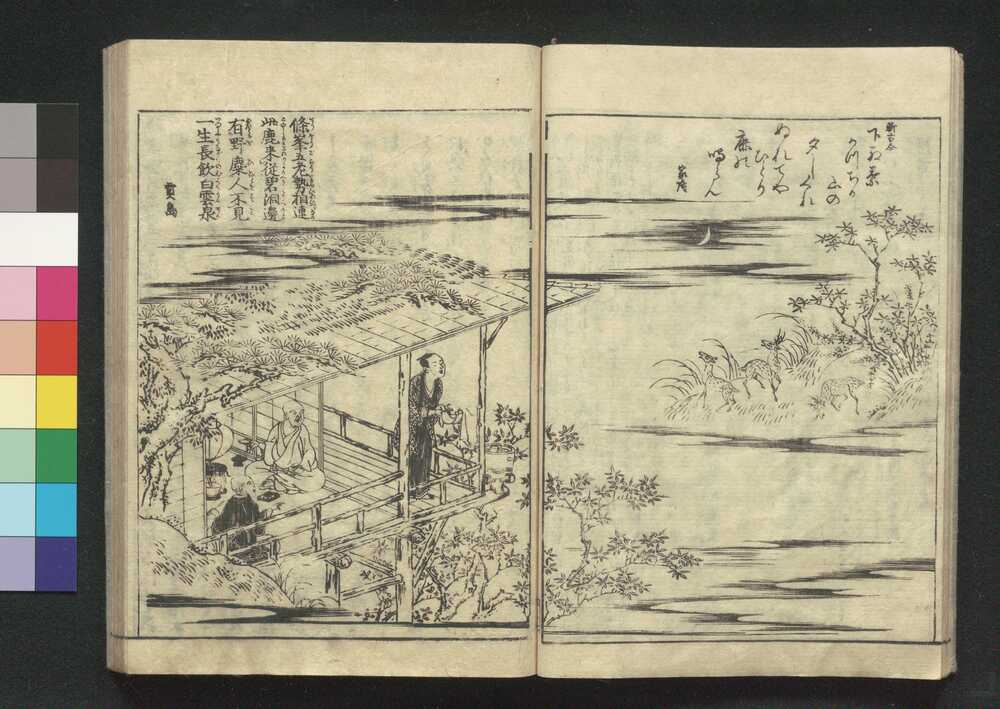 新古今
下紅葉
かつちる
山の
夕しくれ
ぬれてや
ひとり
鹿の
鳴らん
家隆
條峯五老勢相連
此鹿来従碧洞邊
有野麋人不見
一生長飲白雲泉
賈島